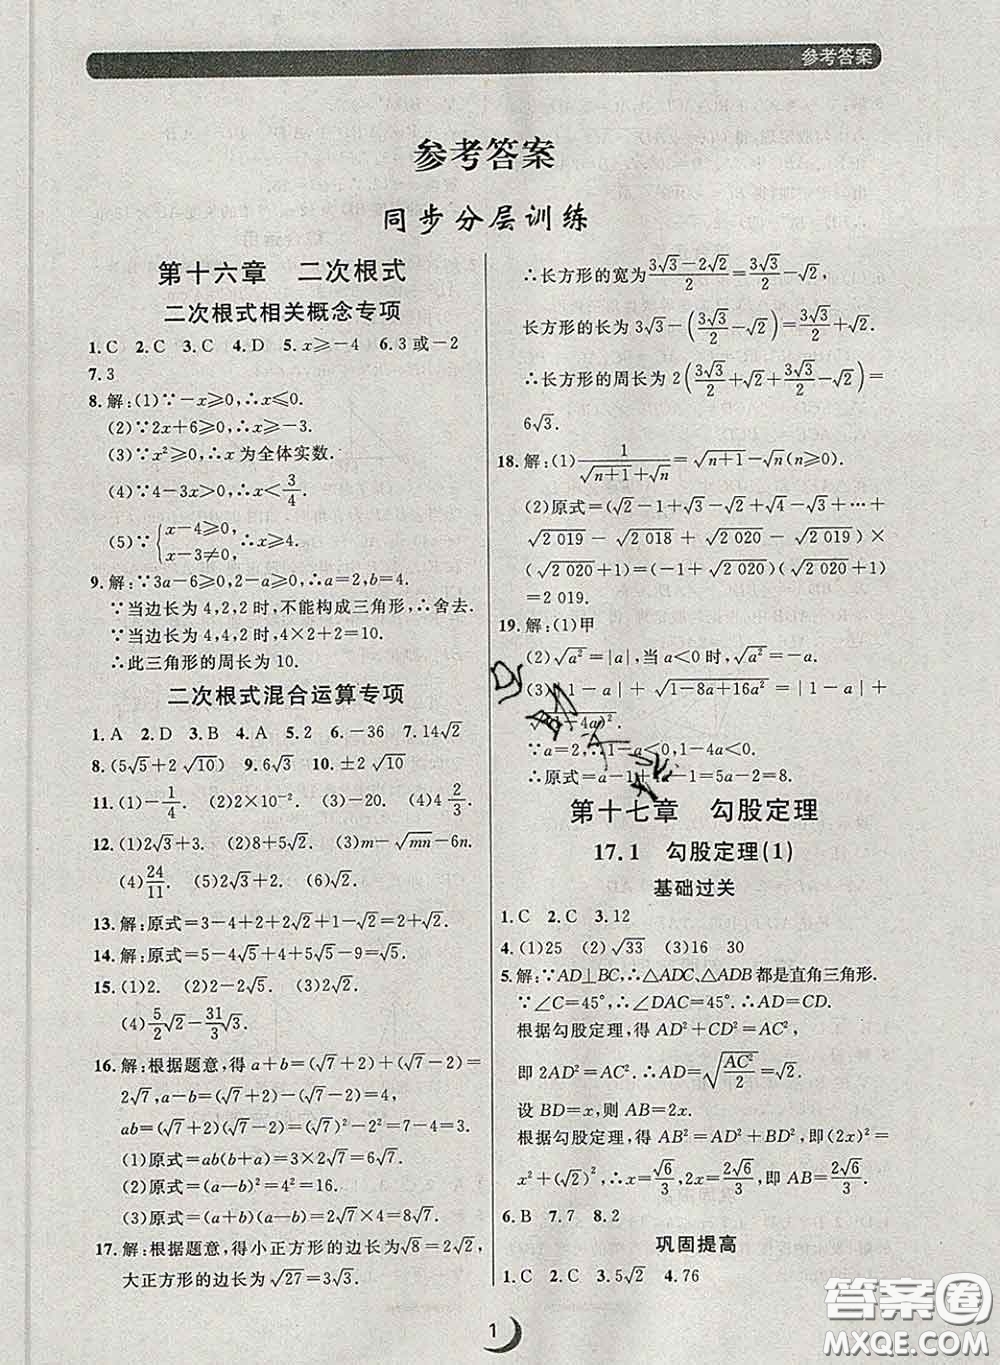 参考答案
参考答案
同步分层训练
第十六章 二次根式
二次根式相关概念专项
1.C 2.C 3.C 4.D 5.x≥-4 6.3或-2
7.3
8.解:(1)∵-x≥0,∴x≤0.
(2)∵2x+6≥0,∴x≥-3.
(3)∵x²≥0,∴x为全体实数.
(4)∵4-3x>0,∴x<3/4.
(5)∵{x-4≥0, x-3≠0, ∴x≥4.
9.解:∵3a-6≥0,2-a≥0,∴a=2,b=4.
∵当边长为4,2,2时,不能构成三角形,∴舍去.
∵当边长为4,4,2时,4×2+2=10.
∴此三角形的周长为10.
二次根式混合运算专项
1.A 2.D 3.B 4.A 5.2 6.-36 7.14√2
8.(5√5+2√10) 9.6√3 10.±2√10
11.(1)-1/4. (2)2×10⁻². (3)-20. (4)4√(2/3).
12.(1)2√3+3. (2)8+5√2. (3)m-√mn-6n
(4)24/11. (5)2√3+2. (6)2√6.
13.解:原式=3-4+2+2√2+1-√2=2+√2.
14.解:原式=5-4√5+4+5√5-9=√5.
15.(1)2. (2)2-2√5. (3)2√3.
(4)5/2√2-31/3√3.
16.解:根据题意,得a+b=(√7+2)+(√7-2)=
2√7,a-b=(√7+2)-(√7-2)=4,
ab=(√7+2)(√7-2)=(√7)²-2²=7-4=3.
(1)原式=ab(a+b)=3×2√7=6√7.
(2)原式=(a-b)²=4²=16.
(3)原式=(a+b)(a-b)=2√7×4=8√7.
17.解:根据题意,得小正方形的边长为√8=2√2,
大正方形的边长为√27=3√3.
∴长方形的宽为(3√3-2√2)/2=3√3/2-√2,
长方形的长为3√3-(3√3/2-√2)=3√3/2+√2.
∴长方形的周长为2(3√3/2+√2+3√3/2-√2)=
6√3.
18.解:(1)1/(√(n+1)+√n)=√(n+1)-√n(n≥0).
(2)原式=(√2-1+√3-√2+√4-√3+…+
√2 019-√2 018+√2 020-√2 019)×
(√2 020+1)=(-1+√2 020)(√2 020+1)
=2 019.
19.解:(1)甲
(2)√a²=|a|,当a<0时,√a²=-a.
(3)|1-a|+√(1-8a+16a²)=|1-a|+
-4a)².
∵a=2,∴1-a<0,1-4a<0.
∴原式=a-1+4a-1=5a-2=8.
第十七章 勾股定理
17.1 勾股定理(1)
基础过关
1.C 2.C 3.12
4.(1)25 (2)√33 (3)16 30
5.解:∵AD⊥BC,∴△ADC、△ADB都是直角三角形.
∵∠C=45°,∴∠DAC=45°.∴AD=CD.
根据勾股定理,得AD²+CD²=AC²,
即2AD²=AC².∴AD=√(AC²/2)=√2.
设BD=x,则AB=2x.
根据勾股定理,得AB²=AD²+BD²,即(2x)²=
x²+(√2)²,∴x=√6/3,2x=2√6/3,即AB=2√6/3.
6.B 7.7 8.2
巩固提高
1.C 2.C 3.5√2 4.76
1
答案圈
MXQE.COM